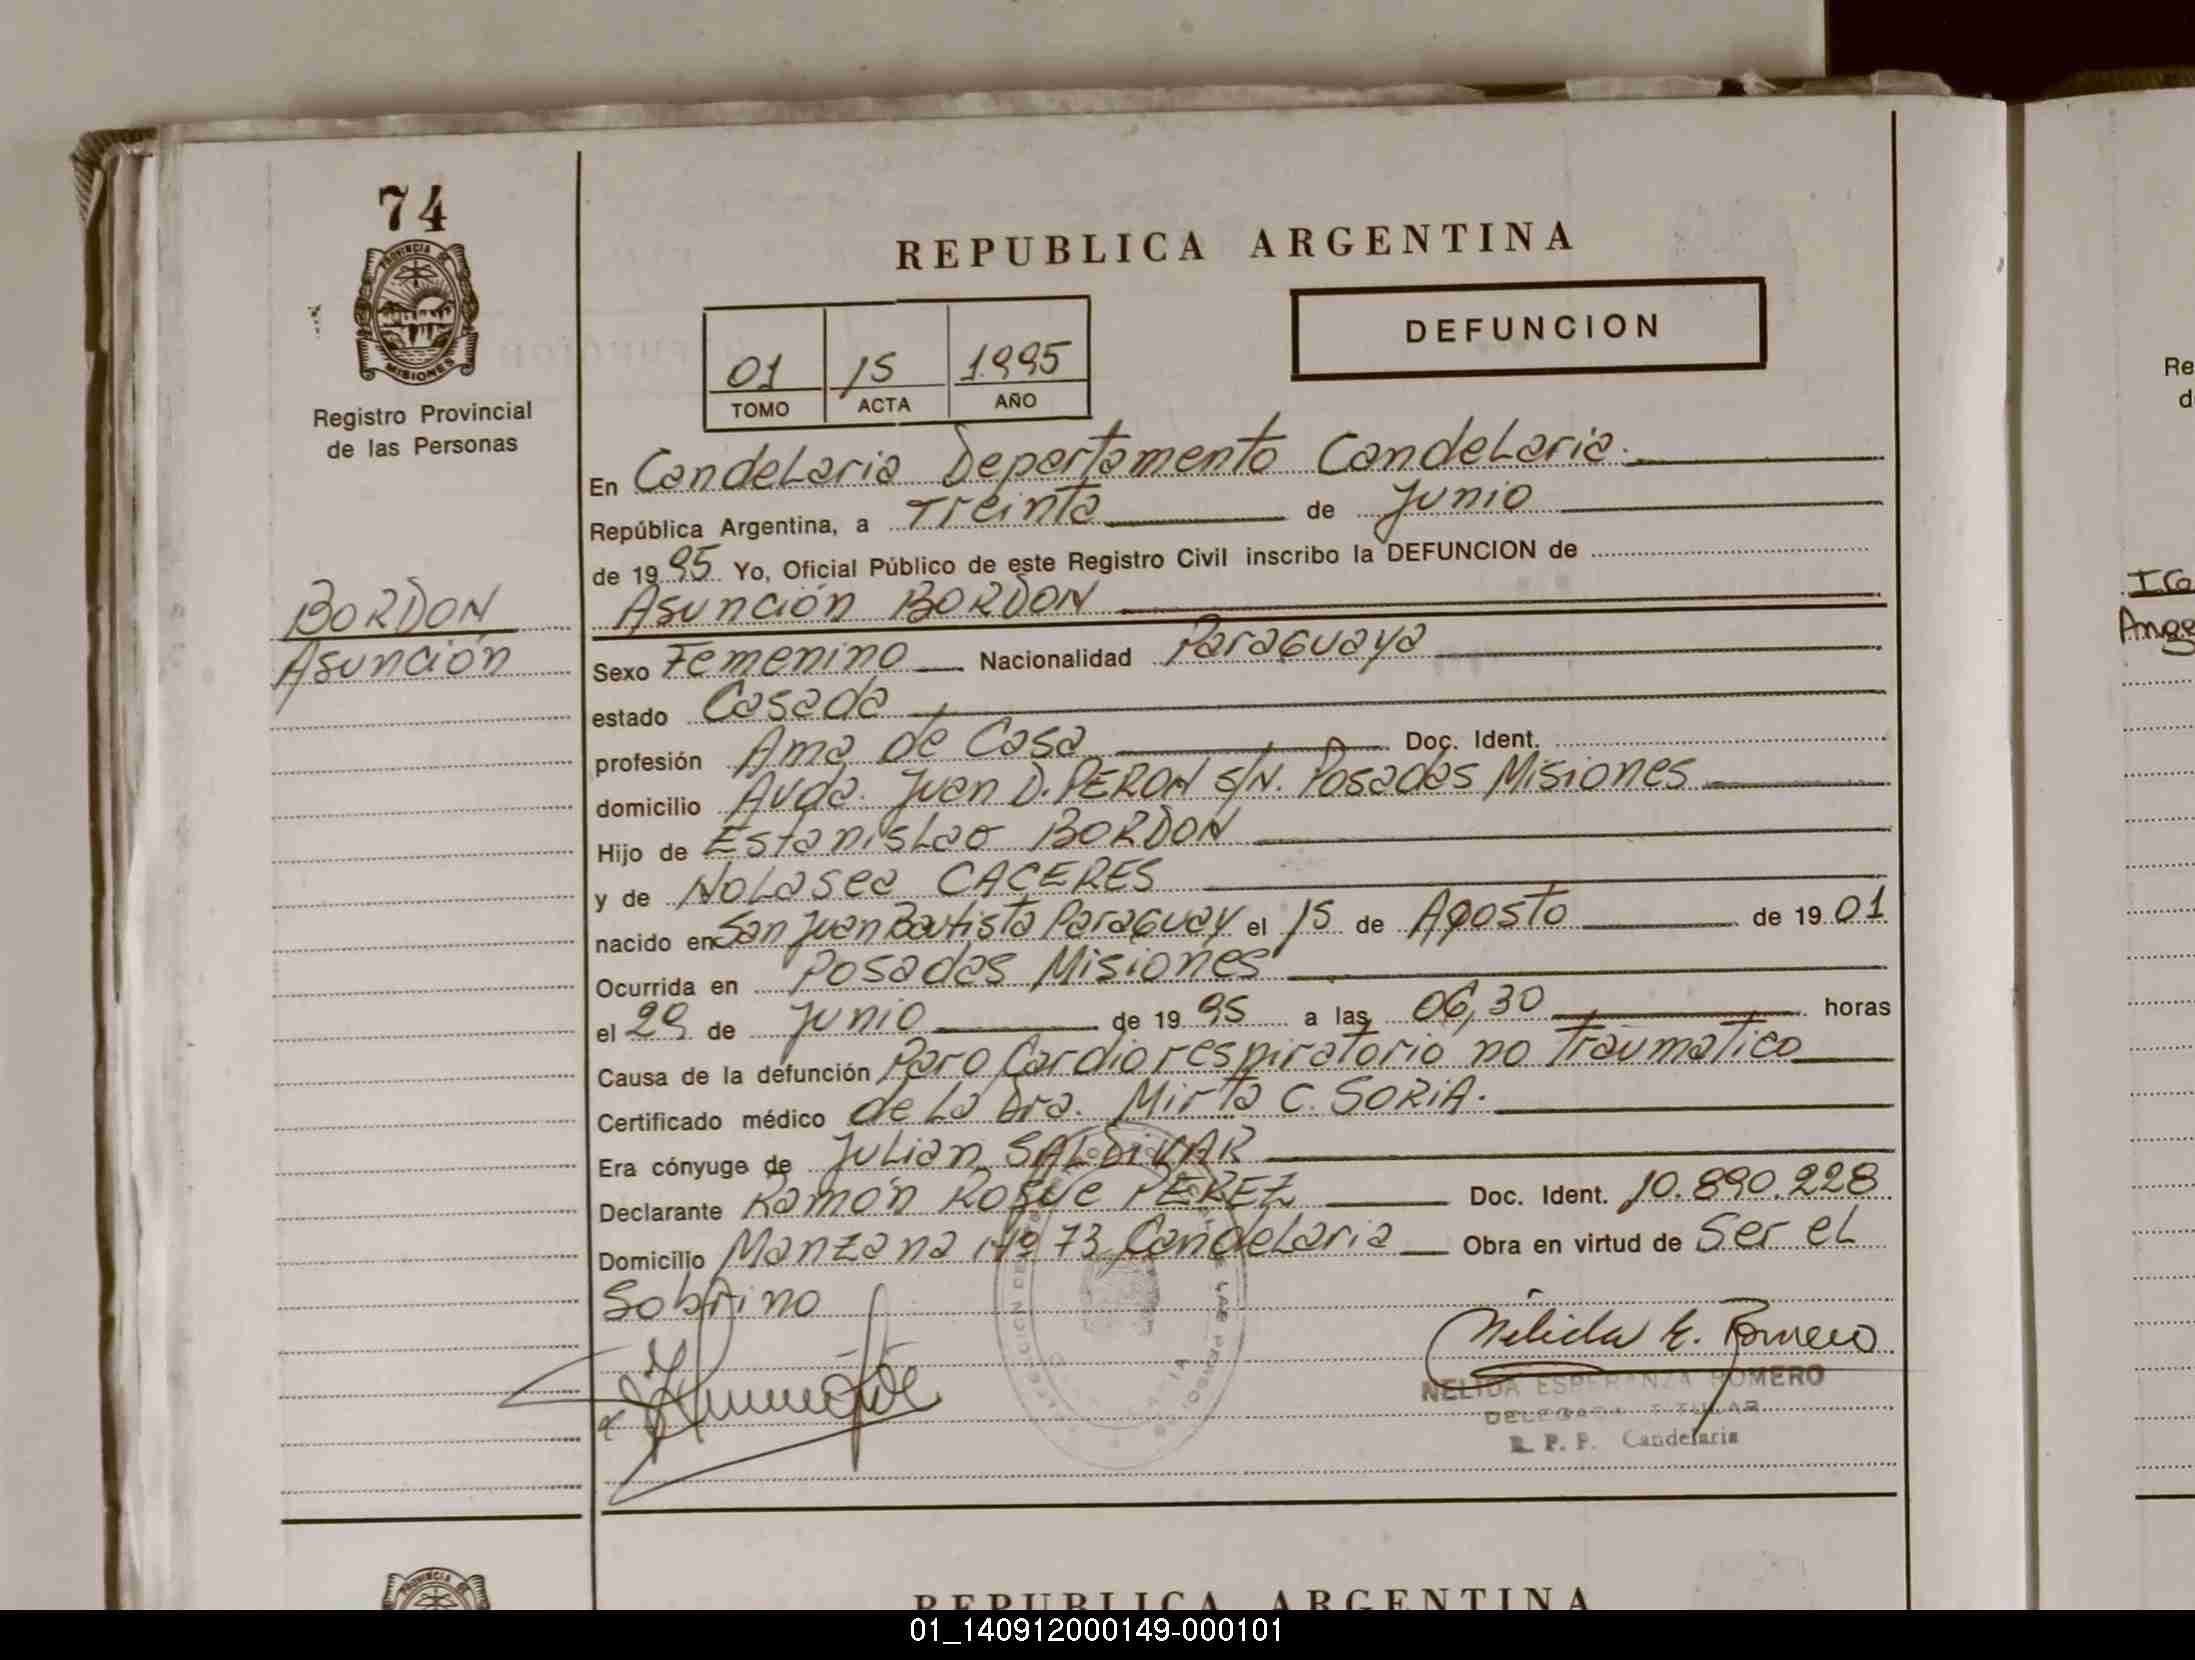 74
PROVINCIA DE
MISIONES
Registro Provincial
de las Personas
REPUBLICA ARGENTINA
DEFUNCION
01 15 1995
TOMO ACTA AÑO
En Candelaria Departamento Candelaria.
República Argentina, a Treinta de Junio
de 1995 Yo, Oficial Público de este Registro Civil inscribo la DEFUNCION de
BORDON
Asunción
Asunción BORDON
Sexo Femenino Nacionalidad Paraguaya
estado Casada
profesión Ama de Casa Doc. Ident.
domicilio Avda. Juan D. PERON S/N. Posadas Misiones
Hijo de Estanislao BORDON
y de Nolasea CACERES
nacido en San Juan Bautista Paraguay el 15 de Agosto de 1901
Ocurrida en Posadas Misiones
el 29 de Junio de 1995 a las 06,30 horas
Causa de la defunción Paro Cardiorespiratorio no Traumatico
Certificado médico de La Dra. Mirta C. SORIA.
Era cónyuge de Julian SALDIVAR
Declarante Ramón Roque PEREZ Doc. Ident. 10.890.228
Domicilio Manzana Nº 73 Candelaria Obra en virtud de Ser el
Sobrino
Nélida E. Romero
NELIDA ESPERANZA ROMERO
DELEGADA TITULAR
R. P. P. Candelaria
PROVINCIA DE
REPUBLICA ARGENTINA
Re
d
IG
Ange
01_140912000149-000101